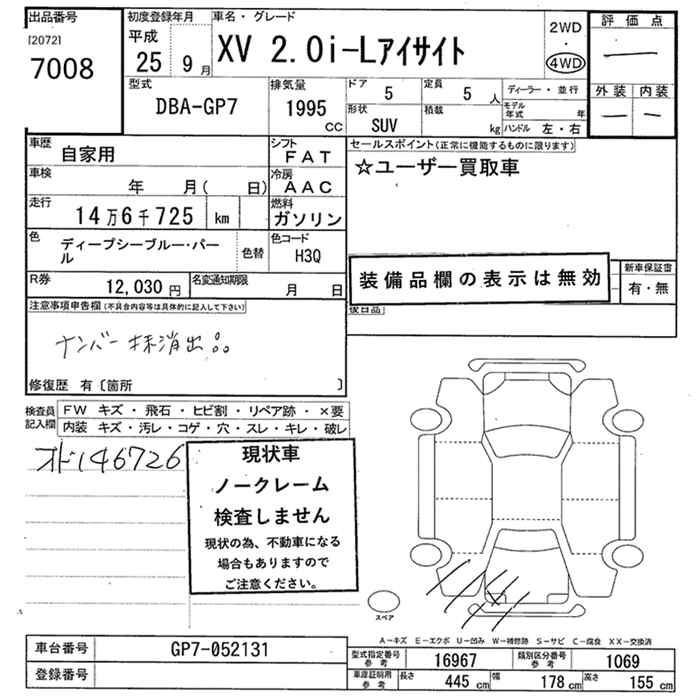 出品番号 初度登録年月 車名・グレード 評価点
[2072]
7008
平成
25 9月
XV 2.0i-Lアイサイト
2WD
・
4WD
―
外装 内装
― ―
型式 排気量 ドア 定員 ディーラー・並行
DBA-GP7 1995 CC 5 5 人
形状 積載 モデル年式 年
SUV kg ハンドル 左・右
車歴 自家用 シフト FAT
セールスポイント(正常に機能するものに限ります)
☆ユーザー買取車
車検 年 月( 日) 冷房 AAC
走行 14万6千725 km 燃料 ガソリン
色 ディープシーブルー・パール 色替 色コード H3Q
R券 12,030 円 名変通知期限 月 日
装備品欄の表示は無効
新車保証書
有・無
後日品
注意事項申告欄(不具合内容等は具体的に記入して下さい)
ナンバー抹消出品
修復歴 有〔箇所 〕
検査員記入欄
FW キズ・飛石・ヒビ割・リペア跡・×要
内装 キズ・汚レ・コゲ・穴・スレ・キレ・破レ
オド146726
現状車
ノークレーム
検査しません
現状の為、不動車になる
場合もありますので
ご注意ください。
スペア
A-キズ E-エクボ U-凹み W-補修跡 S-サビ C-腐食 XX-交換済
車台番号 GP7-052131
型式指定番号 参考 16967 類別区分番号 参考 1069
登録番号
車庫証明用 参考 長さ 445 cm 幅 178 cm 高さ 155 cm